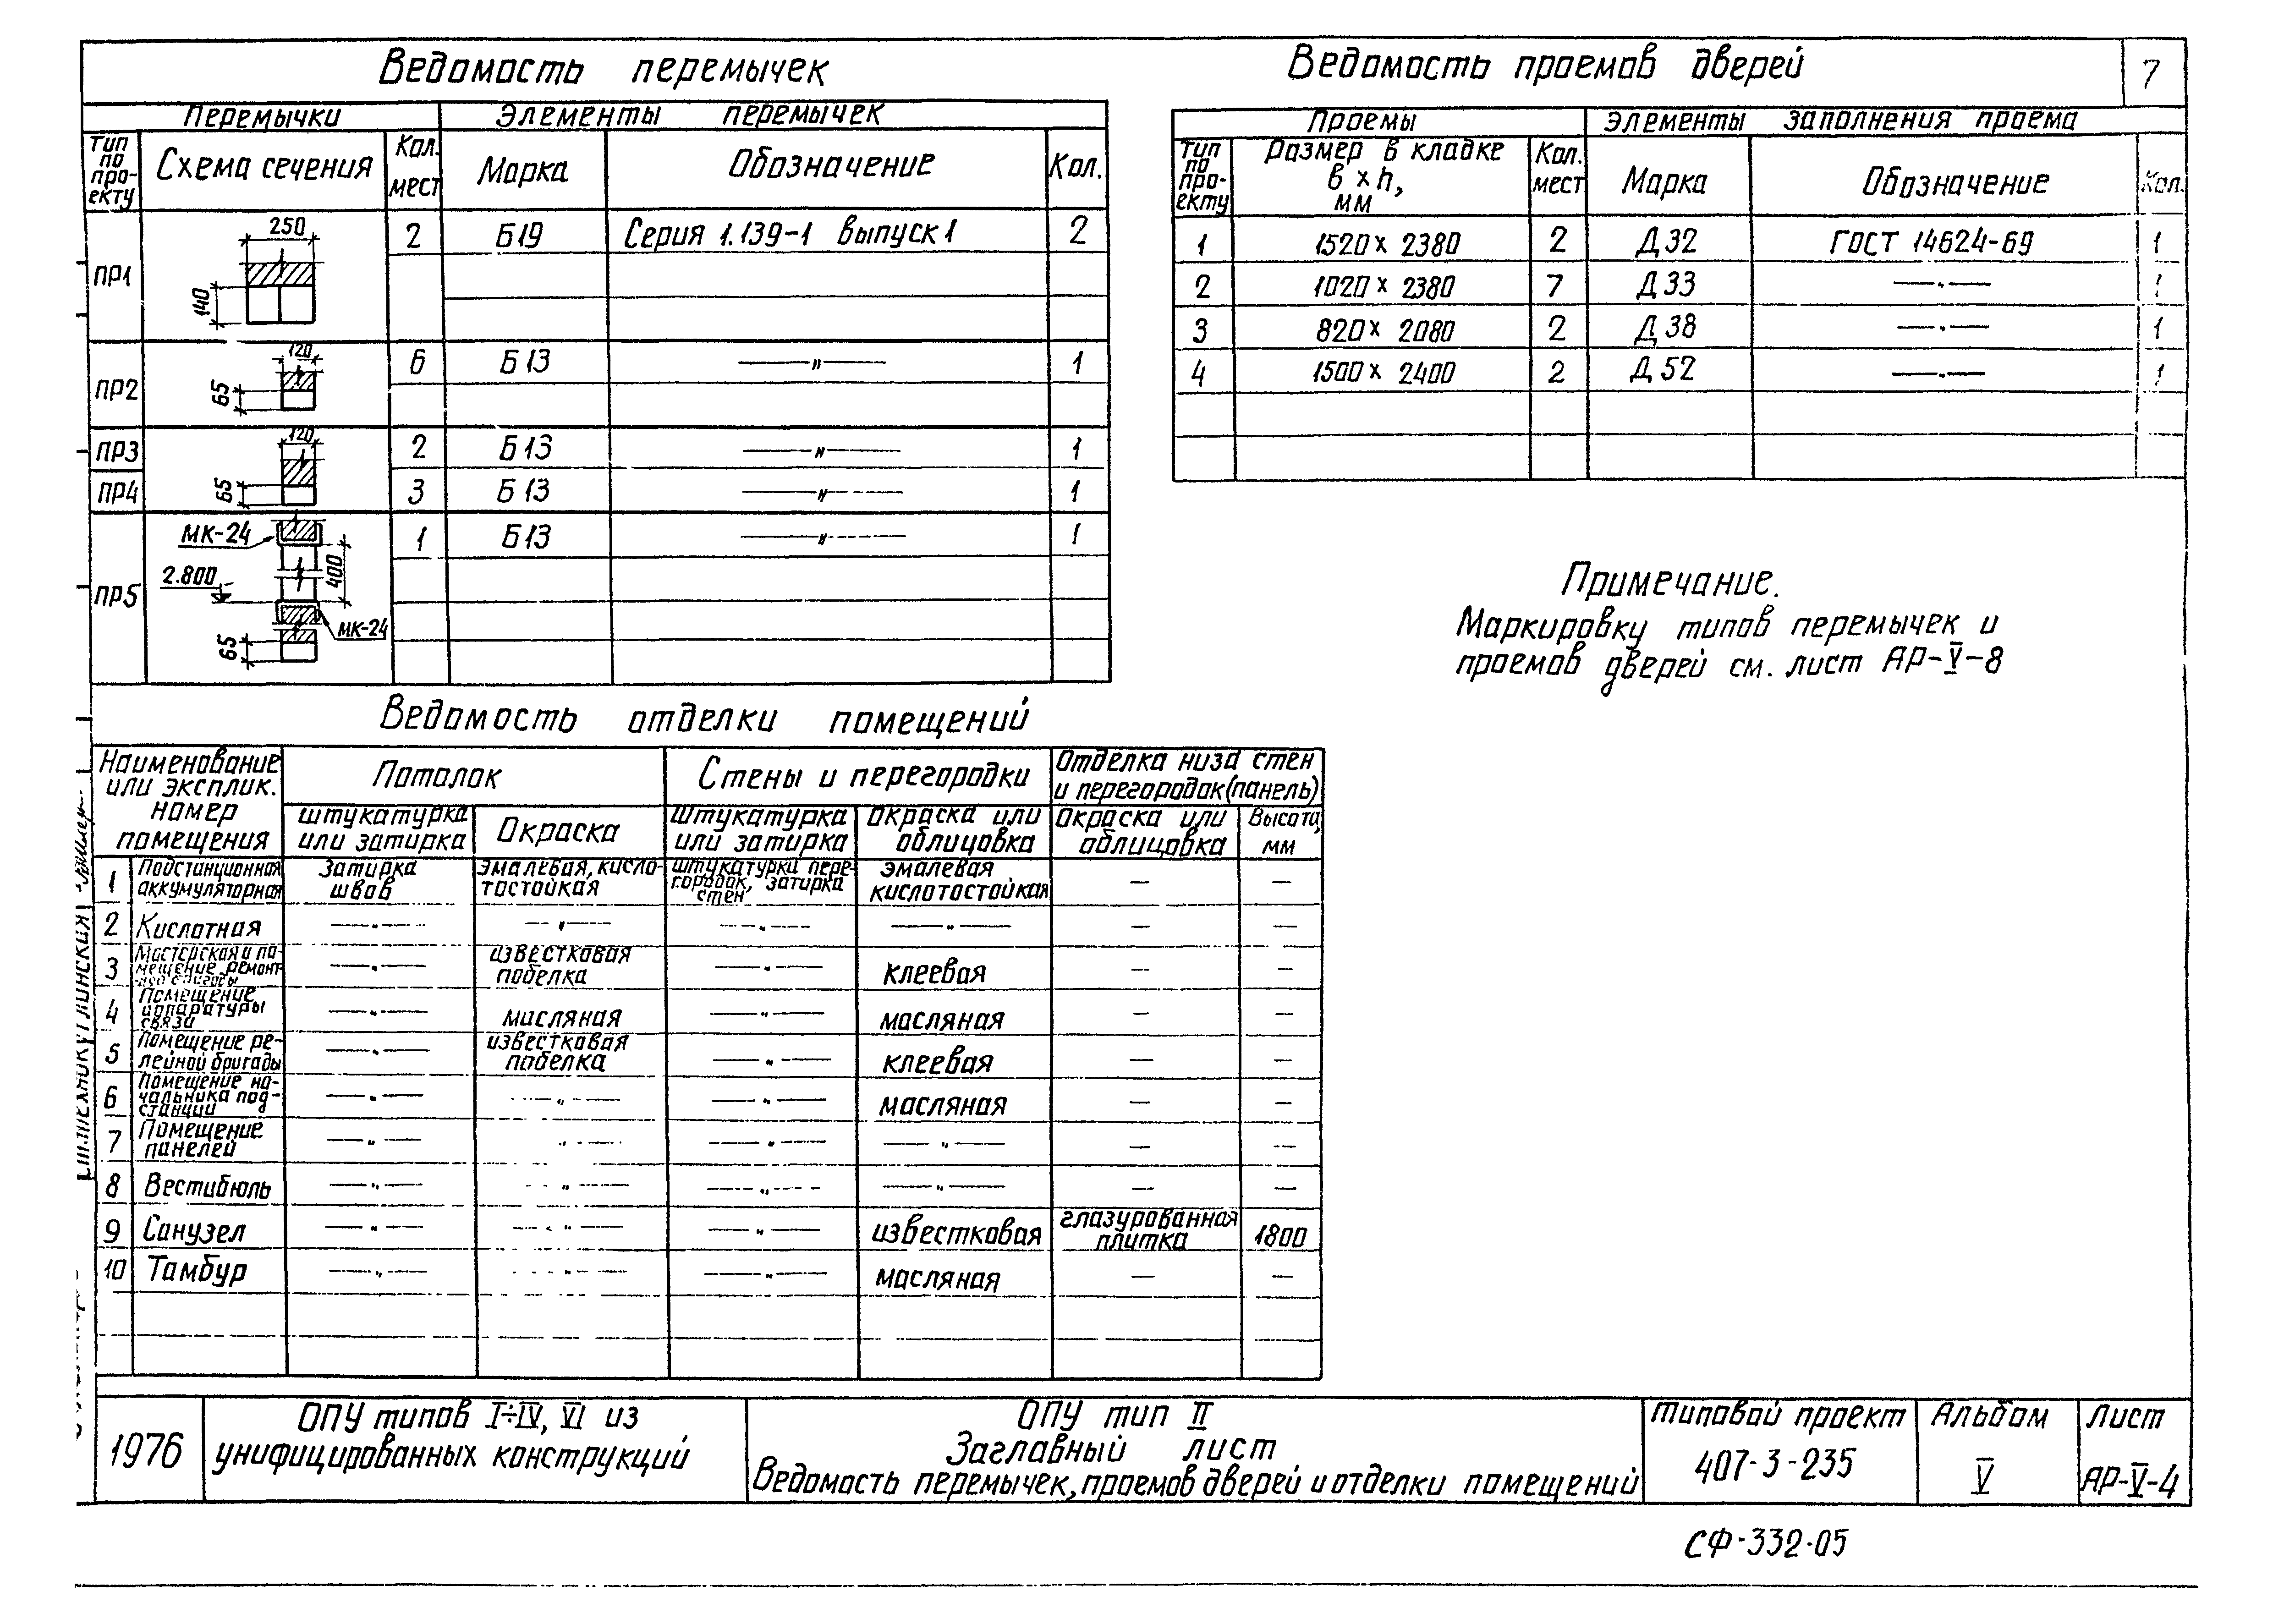 Ведомость перемычек
Перемычки Элементы перемычек
Тип по про-екту Схема сечения Кол. мест Марка Обозначение Кол.
ПР1 250 140 2 Б19 Серия 1.139-1 выпуск 1 2
ПР2 120 65 6 Б13 —"— 1
ПР3 120 2 Б13 —"— 1
ПР4 65 3 Б13 —"— 1
ПР5 МК-24 2.800 400 МК-24 65 1 Б13 —"— 1
Ведомость проемов дверей
7
Проемы Элементы заполнения проема
Тип по про-екту Размер в кладке в х h, мм Кол. мест Марка Обозначение Кол.
1 1520 х 2380 2 Д32 ГОСТ 14624-69 1
2 1020 х 2380 7 Д33 —"— 1
3 820 х 2080 2 Д38 —"— 1
4 1500 х 2400 2 Д52 —"— 1
Примечание.
Маркировку типов перемычек и
проемов дверей см. лист АР-V-8
Ведомость отделки помещений
Наименование или эксплик. номер помещения Потолок Стены и перегородки Отделка низа стен и перегородок (панель)
штукатурка или затирка Окраска Штукатурка или затирка Окраска или облицовка Окраска или облицовка Высота, мм
1 Подстанционная аккумуляторная Затирка швов эмалевая, кисло-тостойкая штукатурка пере-городок, затирка стен эмалевая кислотостойкая — —
2 Кислотная —"— —"— —"— —"— — —
3 Мастерская и по-мещение ремонт-ной бригады —"— известковая побелка —"— клеевая — —
4 Помещение аппаратуры связи —"— масляная —"— масляная — —
5 Помещение ре-лейной бригады —"— известковая побелка —"— клеевая — —
6 Помещение на-чальника под-станции —"— —"— —"— масляная — —
7 Помещение панелей —"— —"— —"— —"— — —
8 Вестибюль —"— —"— —"— —"— — —
9 Санузел —"— —"— —"— известковая глазурованная плитка 1800
10 Тамбур —"— —"— —"— масляная — —
1976
ОПУ типов I÷IV, VI из
унифицированных конструкций
ОПУ тип II
Заглавный лист
Ведомость перемычек, проемов дверей и отделки помещений
Типовой проект
407-3-235
Альбом
V
Лист
АР-V-4
СФ-332-05